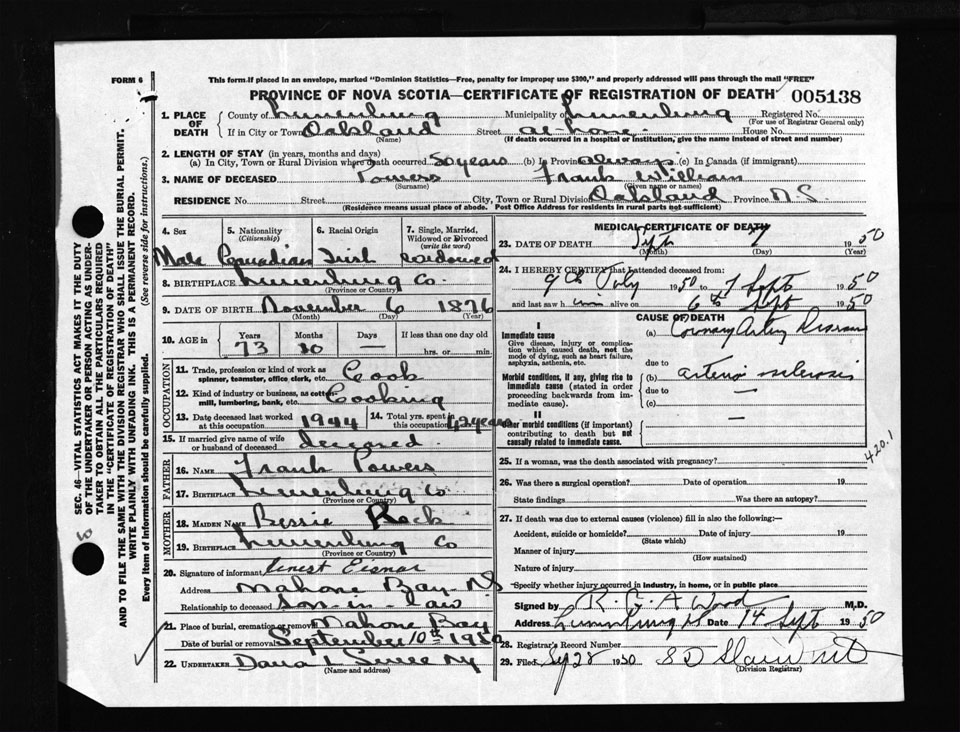 FORM 6
This form if placed in an envelope, marked "Dominion Statistics—Free, penalty for improper use $300," and properly addressed will pass through the mail "FREE"
PROVINCE OF NOVA SCOTIA—CERTIFICATE OF REGISTRATION OF DEATH
005138
1. PLACE OF DEATH
County of Lunenburg Municipality Lunenburg Registered No.
(For use of Registrar General only)
If in City or Town Oakland Street at-home House No.
(Name) (If death occurred in a hospital or institution, give the name instead of street and number)
2. LENGTH OF STAY (in years, months and days)
(a) In City, Town or Rural Division where death occurred 50 years (b) In Province always (c) In Canada (if immigrant)
3. NAME OF DECEASED Powers Frank William
(Surname) (Given name or names)
RESIDENCE No. Street City, Town or Rural Division Oakland Province N.S.
(Residence means usual place of abode. Post Office Address for residents in rural parts not sufficient)
4. Sex 5. Nationality (Citizenship) 6. Racial Origin 7. Single, Married, Widowed or Divorced (write the word)
Male Canadian Irish widowed
8. BIRTHPLACE Lunenburg Co.
(Province or Country)
9. DATE OF BIRTH November 6 1876
(Month) (Day) (Year)
10. AGE in Years Months Days If less than one day old
73 10 — hrs. or min.
OCCUPATION
11. Trade, profession or kind of work as spinner, teamster, office clerk, etc. Cook
12. Kind of industry or business, as cotton-mill, lumbering, bank, etc. Cooking
13. Date deceased last worked at this occupation 1944 14. Total yrs. spent in this occupation 42 years
15. If married give name of wife or husband of deceased deceased
FATHER
16. NAME Frank Powers
17. BIRTHPLACE Lunenburg Co
(Province or Country)
MOTHER
18. MAIDEN NAME Bessie
19. BIRTHPLACE Lunenburg Co
(Province or Country)
20. Signature of informant Ernest Eisnor
Address Mahone Bay NS
Relationship to deceased son-in-law
21. Place of burial, cremation or removal Mahone Bay
Date of burial or removal September 10th 1950
22. UNDERTAKER Dana L
(Name and address)
MEDICAL CERTIFICATE OF DEATH
23. DATE OF DEATH Sept 7 1950
(Month) (Day) (Year)
24. I HEREBY CERTIFY that I attended deceased from:
9th July 1950 to 7 Sept 1950
and last saw him alive on 6th Sept 1950
CAUSE OF DEATH
I
Immediate cause (a) Coronary Artery Disease
Give disease, injury or complication which caused death, not the mode of dying, such as heart failure, asphyxia, asthenia, etc.
due to
Morbid conditions, if any, giving rise to immediate cause (stated in order proceeding backwards from immediate cause).
(b) arterio sclerosis
due to —
(c)
II
Other morbid conditions (if important) contributing to death but not causally related to immediate cause. —
420.1
25. If a woman, was the death associated with pregnancy?
26. Was there a surgical operation? Date of operation 19
State findings Was there an autopsy?
27. If death was due to external causes (violence) fill in also the following:—
Accident, suicide or homicide? Date of injury 19
(State which)
Manner of injury
(How sustained)
Nature of injury
Specify whether injury occurred in industry, in home, or in public place
Signed by R. G. A Wood M.D.
Address Lunenburg NS Date 14 Sept 1950
28. Registrar's Record Number
29. Filed Sep 28 1950
(Division Registrar)
SEC. 46—VITAL STATISTICS ACT MAKES IT THE DUTY
OF THE UNDERTAKER OR PERSON ACTING AS UNDER-
TAKER TO OBTAIN ALL THE PARTICULARS REQUIRED
IN THE "CERTIFICATE OF REGISTRATION OF DEATH"
AND TO FILE THE SAME WITH THE DIVISION REGISTRAR WHO SHALL ISSUE THE BURIAL PERMIT.
WRITE PLAINLY WITH UNFADING INK. THIS IS A PERMANENT RECORD.
Every item of Information should be carefully supplied. (See reverse side for instructions.)